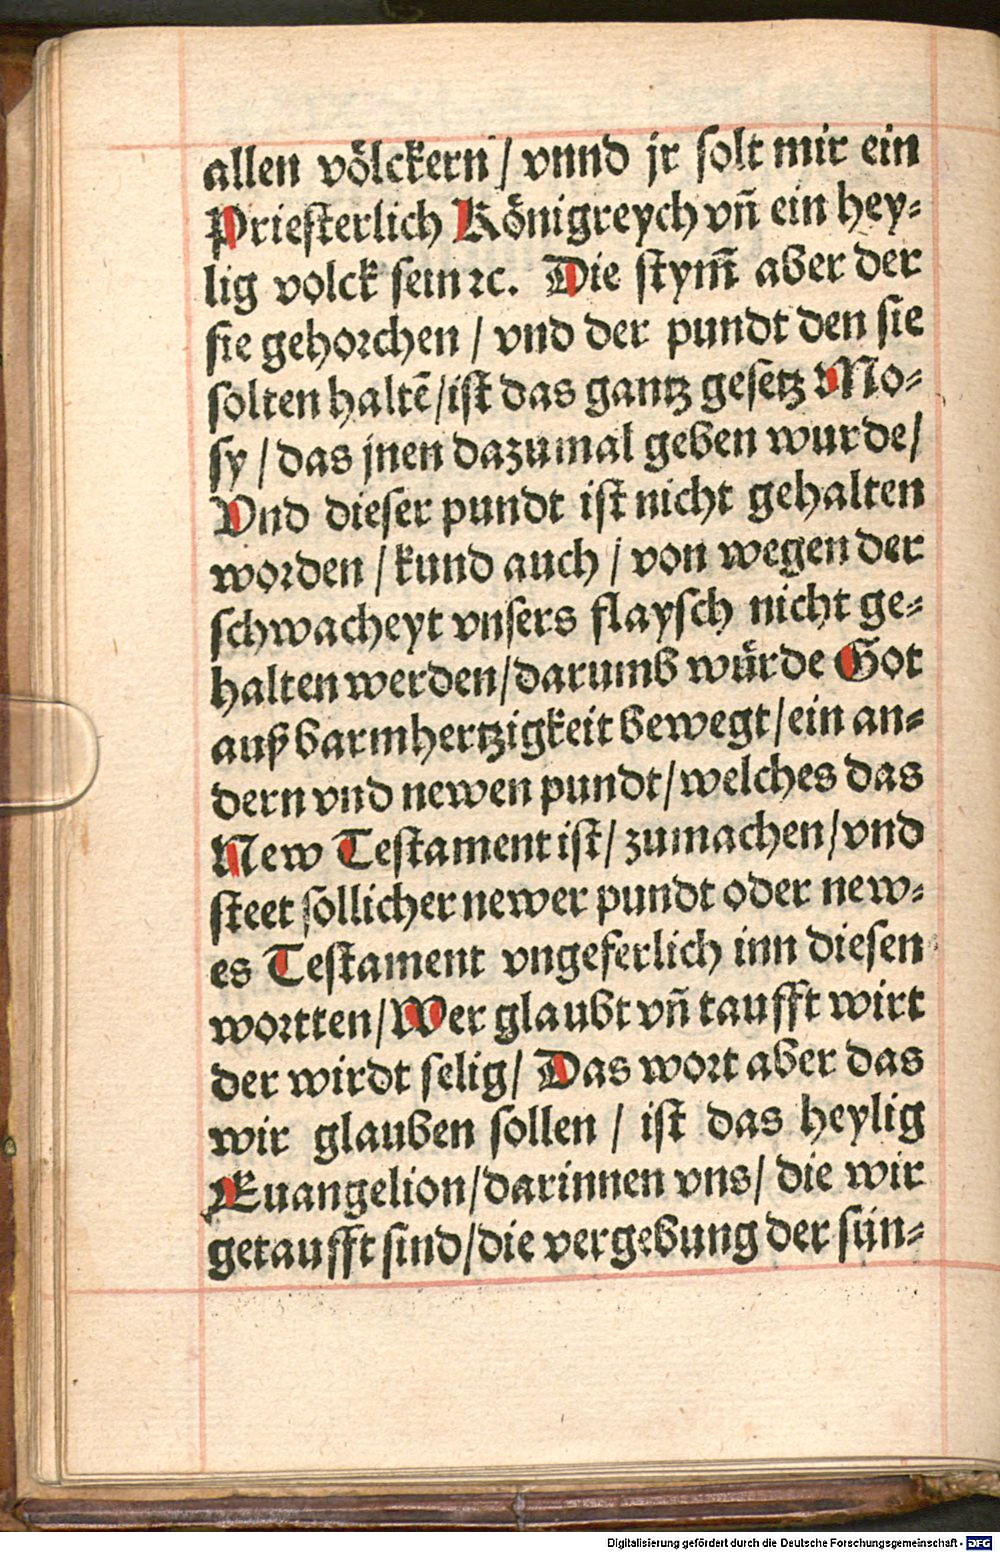 allen völckern / vnnd jr solt mir ein
Priesterlich Königreych vn̄ ein hey⸗
lig volck sein ꝛc. Die stym̄ aber der
sie gehorchen / vnd der pundt den sie
solten haltē / ist das gantz gesetz Mo⸗
sy / das jnen dazumal geben wurde /
Vnd dieser pundt ist nicht gehalten
worden / kund auch / von wegen der
schwacheyt vnsers flaysch nicht ge⸗
halten werden / darumb würde Got
auß barmhertzigkeit bewegt / ein an⸗
dern vnd newen pundt / welches das
New Testament ist / zumachen / vnd
steet sollicher newer pundt oder new⸗
es Testament vngeferlich inn diesen
wortten / Wer glaubt vn̄ taufft wirt
der wirdt selig / Das wort aber das
wir glauben sollen / ist das heylig
Euangelion / darinnen vns / die wir
getaufft sind / die vergebung der sün⸗
Digitalisierung gefördert durch die Deutsche Forschungsgemeinschaft - DFG